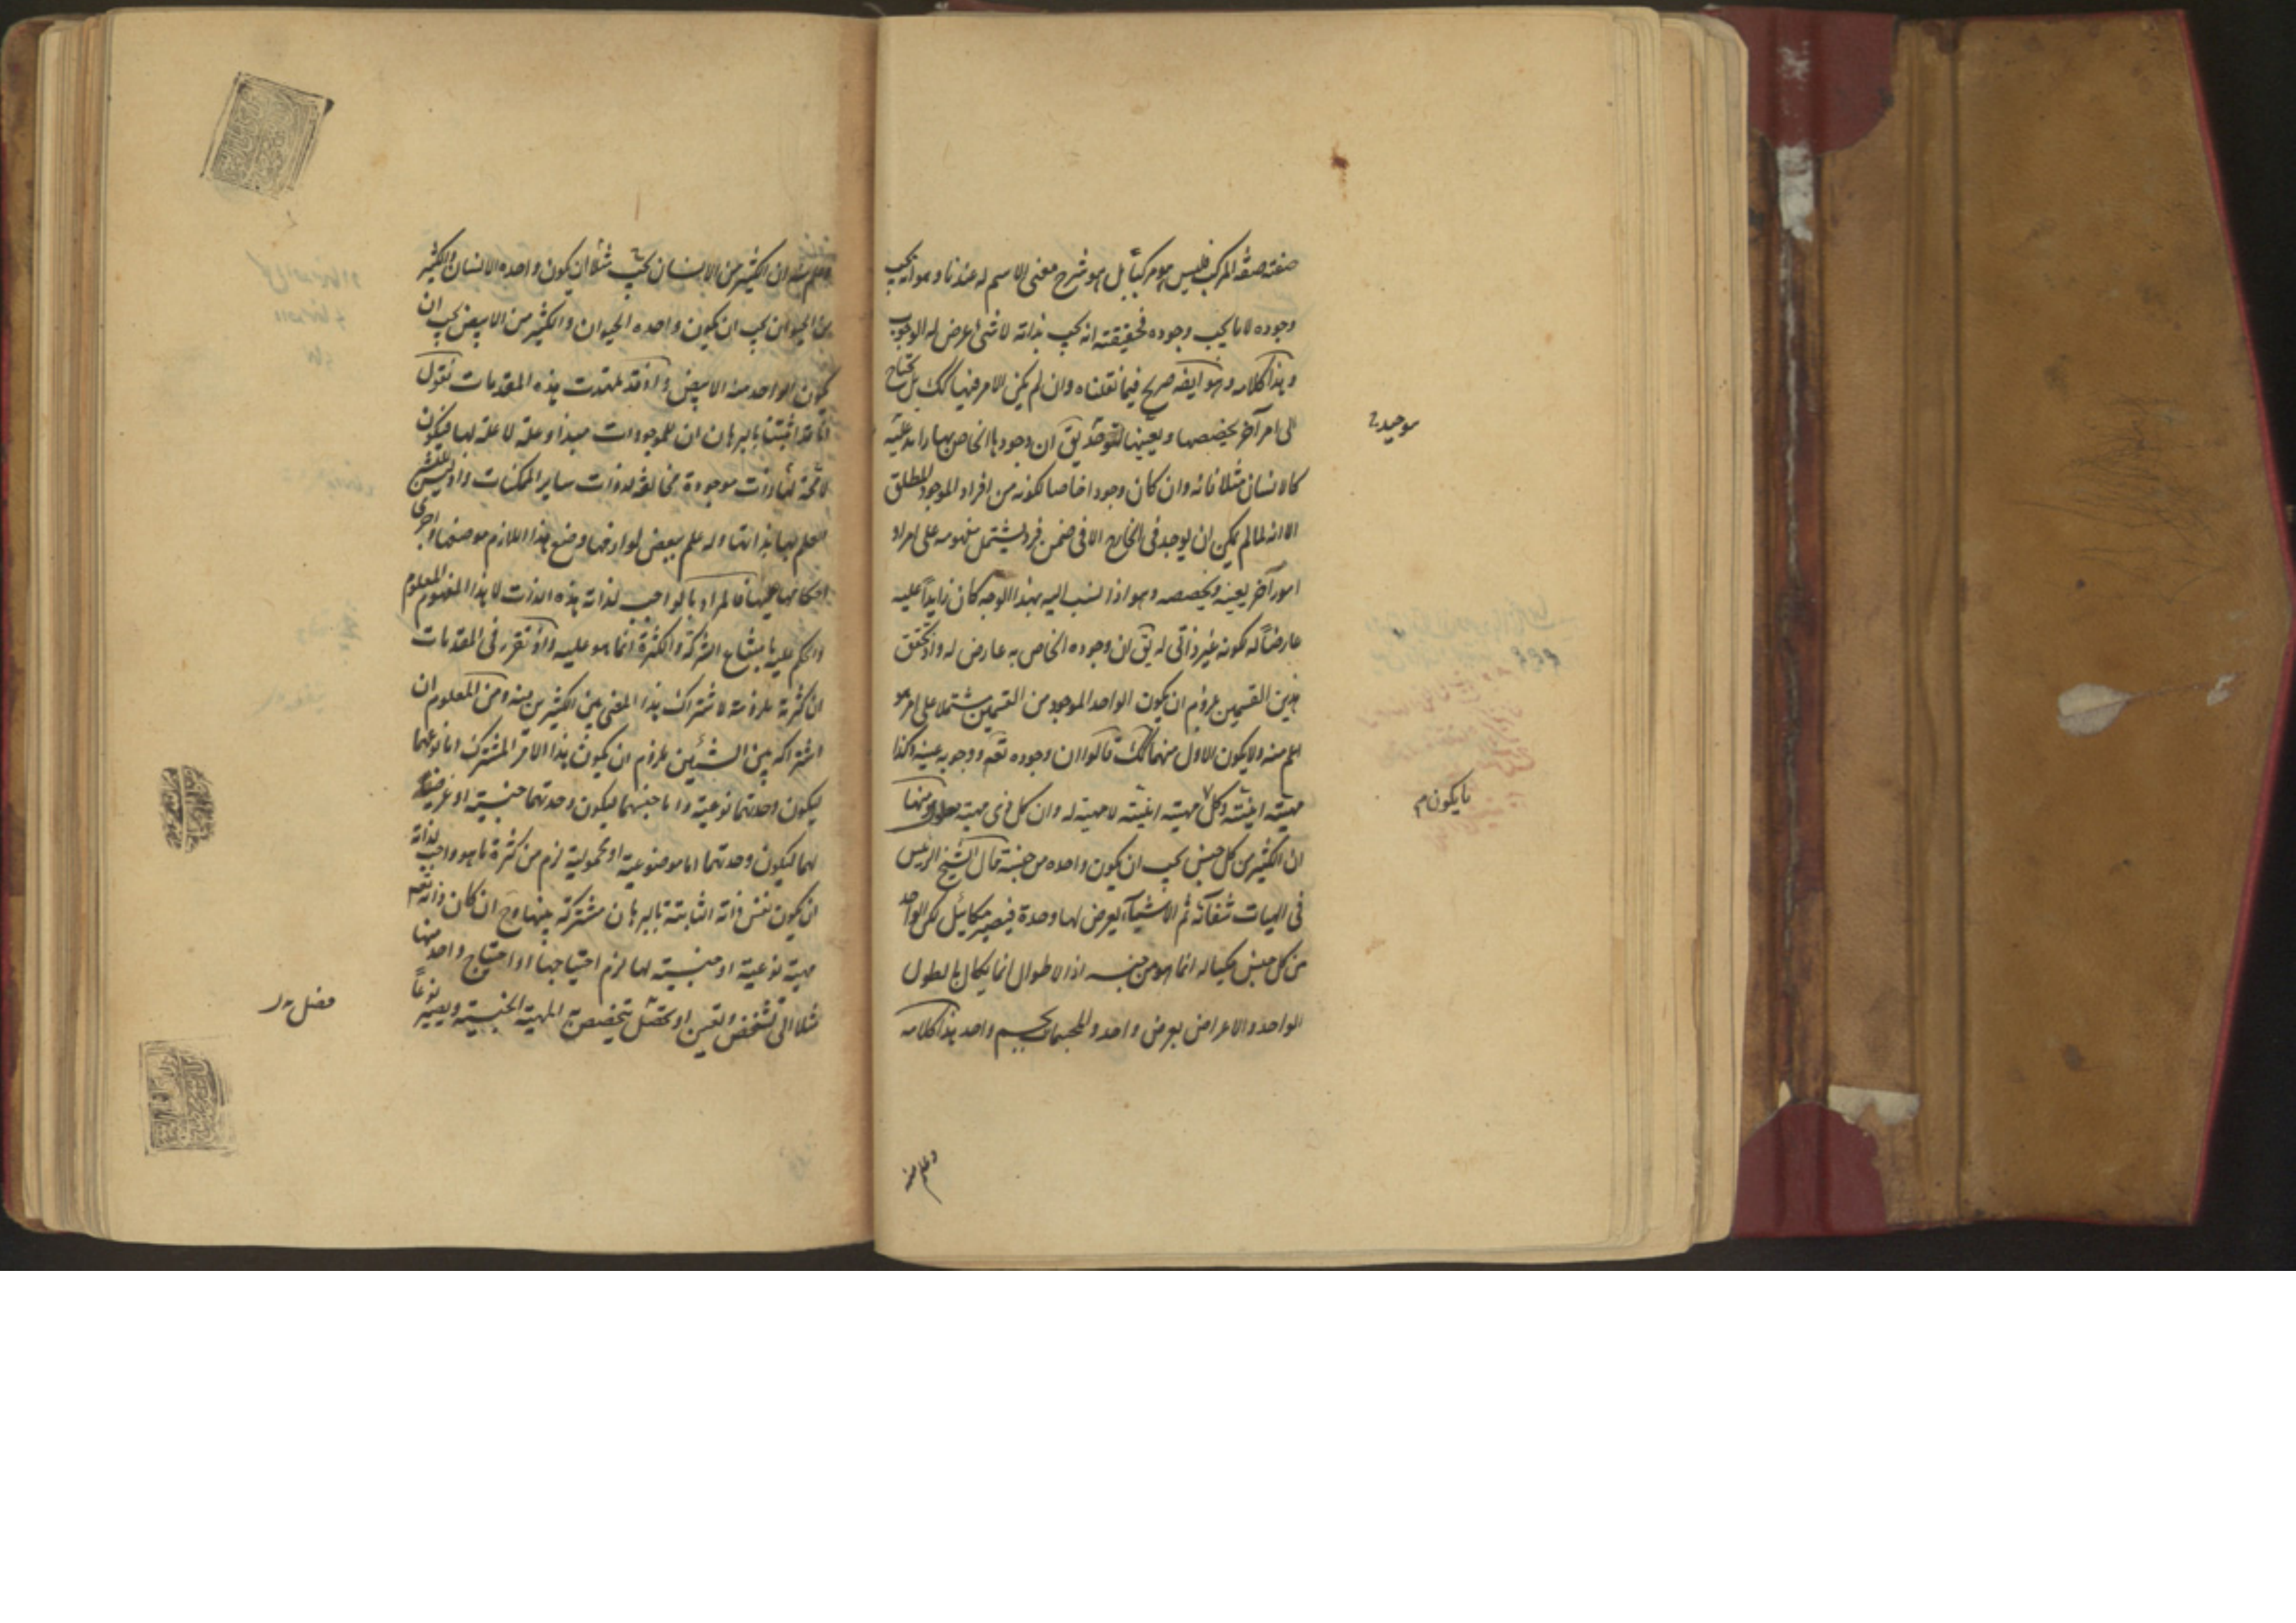 صفته صفة المركب فليس هو مركبا بل هو شرح معنى الاسم له عندنا وهو انه يجب
وجوده لا ما يجب وجوده فحقيقته انه يجب بذاته لا شئ عرض له الوجوب
وهذا كلامه وهو ايضه صريح فيما نقلناه وان لم يكن الامر فيها كك بل يحتاج
الى امر آخر يخصصها ويعينها يق ان وجودها الخاص بها زايد عليه
كالانسان مثلا فانه وان كان وجودا خاصا لكونه من افراد الموجود المطلق
الا انه لما لم يمكن ان يوجد فى الخارج الا فى ضمن فرد يشتمل مفهومه على امر او
امور آخر يعينه ويخصصه وهو اذا نسب اليه بهذا الوجه كان زايدا عليه
عارضا له لكونه غير ذاتى له يق ان وجوده الخاص به عارض له واذ تحقق
هذين القسمين يلزم ان يكون الواحد الموجود من القسمين مشتملا على امر هو
اعم منه ولا يكون الاول منهما كك قالوا ان وجوده تعه ووجوبه عينه وكذا
مهيته انيته وكل مهيته انيته لا مهية له وان كل ذى مهية معلول ومنها
ان الكثير من كل جنس يجب ان يكون واحده من جنسه قال الشيخ الرئيس
فى الهيات شفائه ثم الاشياء يعرض لها وحدة فيصير مكائيل لكن الواحد
من كل جنس مكياله انما هو من جنسه اذ الاطوال انما يكال بالطول
الواحد والاعراض بعرض واحد والمجسمات بجسم واحد هذا كلامه
موجدية
ما يكون م
وعلم منه
وعلم منه ان الكثير من الانسان يجب مثلا ان يكون واحده الانسان والكثير
من الحيوان يجب ان يكون واحده الحيوان والكثير من الابيض يجب ان
يكون الواحد منه الابيض واذ قد تمهدت هذه المقدمات نقول
انا قد اثبتنا بالبرهان ان للموجودات مبدا وعلة لا علة لها فيكون
لا محة لها ذات موجودة مخالفة لذوات ساير الممكنات واذ ليس
العلم بها بذاتها وله علم ببعض لوازمها وضع هذا اللازم موضعها واجرى
احكامها عليها فالمراد بالواجب لذاته هذه الذات لا هذا المفهوم المعلوم
والحكم عليه بامتناع الشركة والكثرة انما هو عليه واذ تقرر فى المقدمات
ان كثرته ملزومة لاشتراك هذا المعنى بين الكثيرين منه ومن المعلوم ان
اشتراكه بين الشيئين يلزم ان يكون هذا الامر المشترك اما نوعهما
ليكون وحدتهما نوعية واما جنسهما ليكون وحدتهما جنسية او
لهما ليكون وحدتهما اما موضوعية او محمولية لزم من كثرة ما هو واجب بذاته
ان يكون نفس ذاته الثابتة بالبرهان مشتركة بينها وح ان كان ذاته تعه
مهية نوعية او جنسية لها لزم احتياجها او احتياج واحد منها
مثلا الى تشخص وتعين او محصل يتخصص المهية الجنسية ويصير نوعا